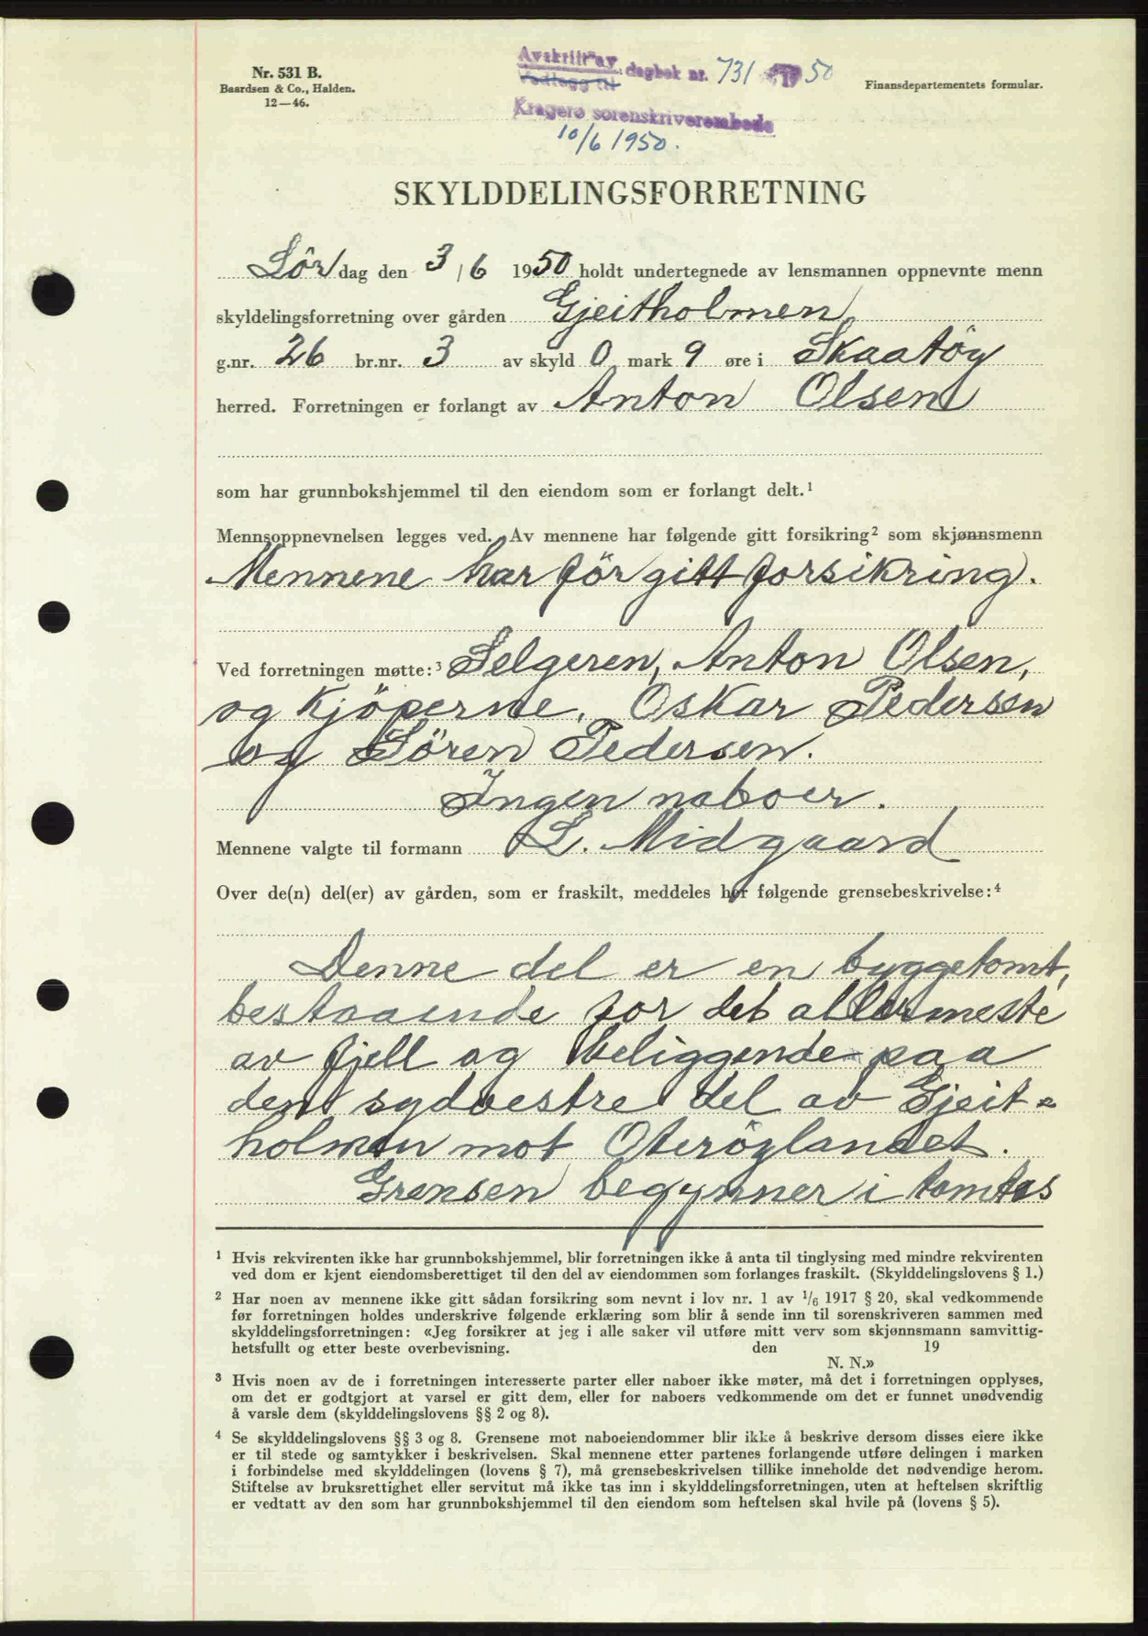 Nr. 531 B.
Baardsen & Co., Halden.
12—46.
Avskrift av
Vedlegg til dagbok nr. 731 1950
Kragerø sorenskriverembede
10/6 1950.
Finansdepartementets formular.
SKYLDDELINGSFORRETNING
Lör dag den 3 / 6 1950 holdt undertegnede av lensmannen oppnevnte menn
skyldelingsforretning over gården Gjeitholmen
g.nr. 26 br.nr. 3 av skyld 0 mark 9 øre i Skaatöy
herred. Forretningen er forlangt av Anton Olsen
som har grunnbokshjemmel til den eiendom som er forlangt delt.¹
Mennsoppnevnelsen legges ved. Av mennene har følgende gitt forsikring² som skjønnsmenn
Mennene har för gitt forsikring.
Ved forretningen møtte:³ Selgeren, Anton Olsen,
og kjöperne, Oskar Pedersen
og Sören Pedersen.
Ingen naboer.
Mennene valgte til formann L. Midgaard
Over de(n) del(er) av gården, som er fraskilt, meddeles her følgende grensebeskrivelse:⁴
Denne del er en byggetomt,
bestaaende for det allermeste
av fjell og beliggende paa
den sydvestre del av Gjeit=
holmen mot Oteröylandet.
Grensen begynner i tomtas
¹ Hvis rekvirenten ikke har grunnbokshjemmel, blir forretningen ikke å anta til tinglysing med mindre rekvirenten
ved dom er kjent eiendomsberettiget til den del av eiendommen som forlanges fraskilt. (Skylddelingslovens § 1.)
² Har noen av mennene ikke gitt sådan forsikring som nevnt i lov nr. 1 av 1/6 1917 § 20, skal vedkommende
før forretningen holdes underskrive følgende erklæring som blir å sende inn til sorenskriveren sammen med
skylddelingsforretningen: «Jeg forsikrer at jeg i alle saker vil utføre mitt verv som skjønnsmann samvittig-
hetsfullt og etter beste overbevisning. den 19
N. N.»
³ Hvis noen av de i forretningen interesserte parter eller naboer ikke møter, må det i forretningen opplyses,
om det er godtgjort at varsel er gitt dem, eller for naboers vedkommende om det er funnet unødvendig
å varsle dem (skylddelingslovens §§ 2 og 8).
⁴ Se skylddelingslovens §§ 3 og 8. Grensene mot naboeiendommer blir ikke å beskrive dersom disses eiere ikke
er til stede og samtykker i beskrivelsen. Skal mennene etter partenes forlangende utføre delingen i marken
i forbindelse med skylddelingen (lovens § 7), må grensebeskrivelsen tillike inneholde det nødvendige herom.
Stiftelse av bruksrettighet eller servitut må ikke tas inn i skylddelingsforretningen, uten at heftelsen skriftlig
er vedtatt av den som har grunnbokshjemmel til den eiendom som heftelsen skal hvile på (lovens § 5).